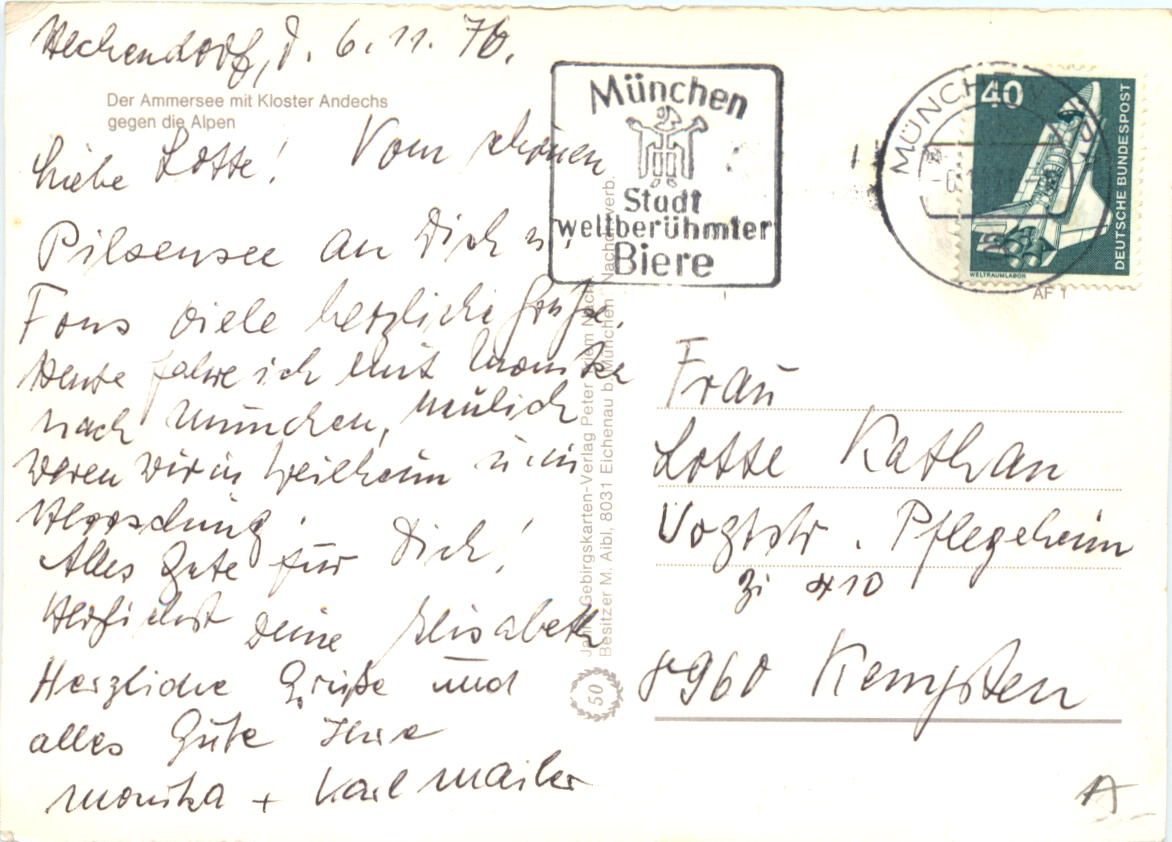 Hechendorf, d. 6.11.76.
Der Ammersee mit Kloster Andechs
gegen die Alpen
Liebe Lotte! Vom schönen
Pilsensee an Dich u.
Fons viele herzliche Grüße.
Heute fahre ich mit Monika
nach München, neulich
waren wir in Weilheim u in
Alles Gute für Dich!
Herzlichst Deine Elisabeth
Herzliche Grüße und
alles Gute Ihre
Monika + Karl Mailer
München
Stadt
weltberühmter
Biere
MÜNCHEN
40
DEUTSCHE BUNDESPOST
WELTRAUMLABOR
AF 1
Gebirgskarten-Verlag Peter
Besitzer M. Aibl, 8031 Eichenau b. München Nachdr. verb.
50
Frau
Lotte Kathan
Vogtstr. Pflegeheim
Zi 410
8960 Kempten
A